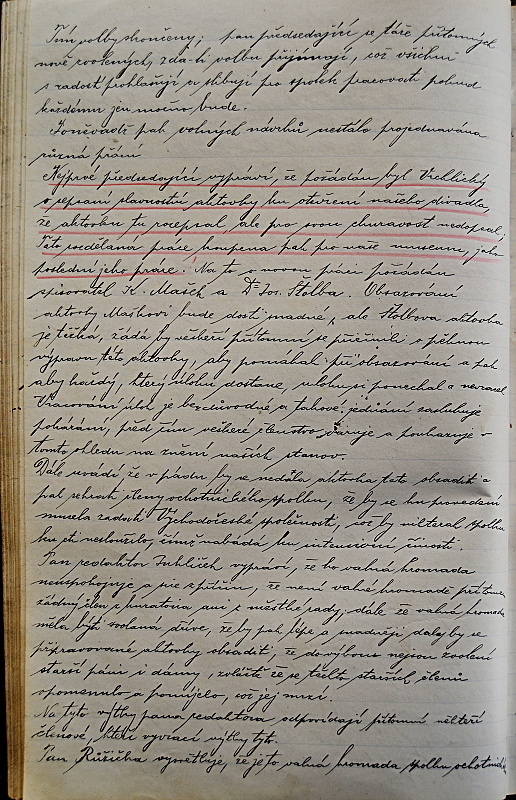 Tím volby skončeny; pan předsedající se táže přítomných
nově zvolených, zda-li volbu přijímají, což všichni
s radostí prohlašují a slibují pro spolek pracovati pokud
každému jen možno bude.
Poněvadž pak volných návrhů nestálo projednávána
různá přání
Nejprve předsedající vypráví, že požádán byl Vrchlický
o sepsání slavnostní aktovky ku otevření našeho divadla,
že aktovku tu rozepsal, ale pro svou churavost nedopsal.
Tato rozdělaná práce koupena pak pro naše museum, jako
poslední jeho práce. Na to o novou práci požádán
spisovatel K. Mašek a Dr Jos. Štolba. Obsazování
aktovky Maškovi bude dosti snadné, ale Štolbova aktovka
je těžká, žádá by veškeří přítomní se přičinili o pěknou
výpravu této aktovky, aby pomáhal při obsazování a pak
aby každý, který úlohu dostane, úlohu si ponechal a nevracel
Vracování úloh je bezdůvodné a takové jednání zasluhuje
pokárání, před čím veškeré členstvo varuje a poukazuje v
tomto ohledu na znění našich stanov.
Dále uvádí, že v pádu by se nedala aktovka tato obsaditi a
pak sehrát členy ochotnického spolku, že by se ku provedení
musela zadati Východočeské společnosti, což by některak spolku
ku cti nesloužilo, čímž nabádá ku intensivní činosti.
Pan redaktor Juhlíček vypráví, že ho valná hromada
neuspokojuje a sice zpříčin, že není valné hromadě přítomen
žádný člen z kuratoria ani z městské rady; dále že valná hromada
měla býti svolaná dříve, že by pak lépe a snadněji daly by se
připravované aktovky obsaditi, že do výboru nejsou zvoleni
starší páni i dámy, zvláště že se těchto starších členů
opomenulo a pomíjelo, což jej mrzí.
Na tyto výtky pana redaktora odpovídají přítomní někteří
členové, kteří vyvrací výtky tyto.
Pan Růžička vysvětluje, že je to valná hromada spolku ochotnick